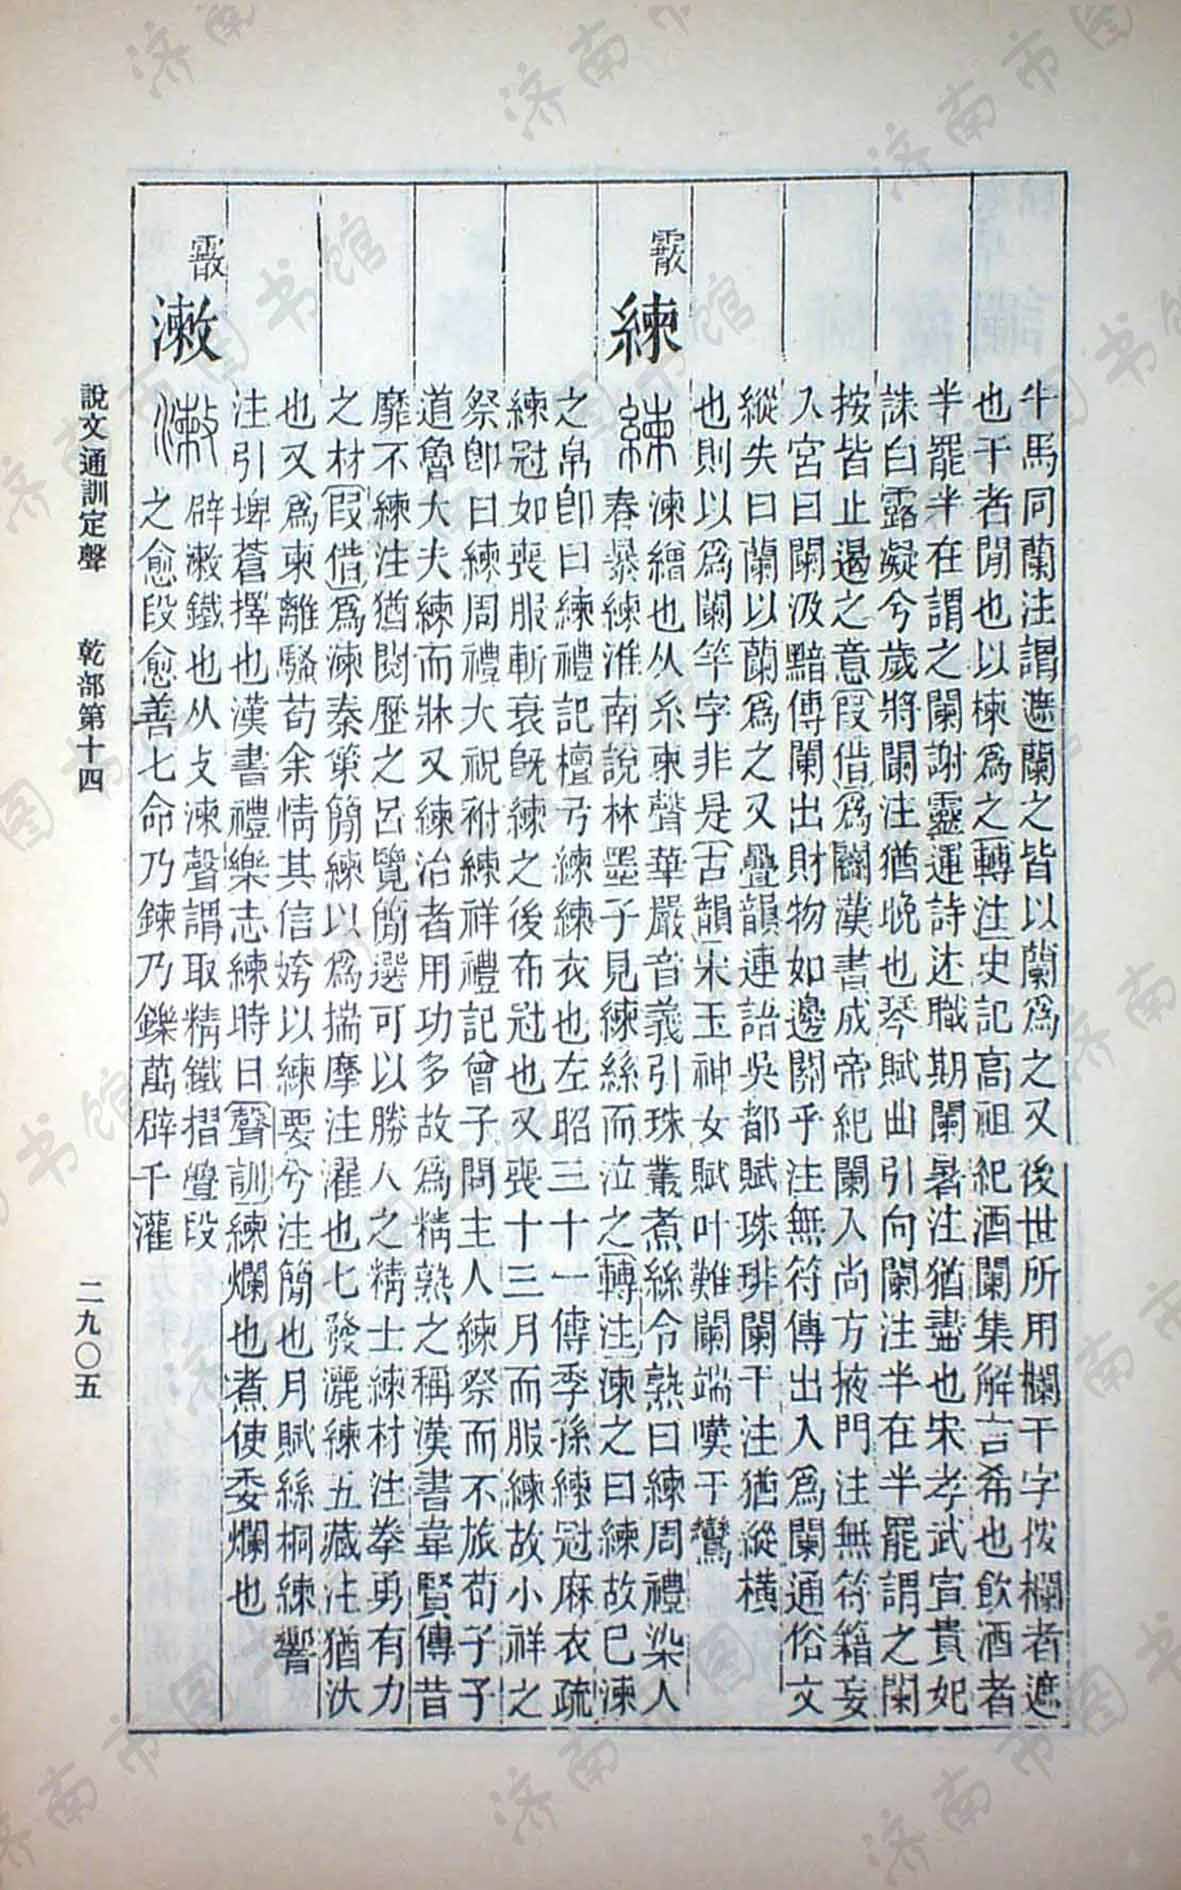 牛馬同蘭注謂遮蘭之皆以蘭爲之又後世所用欄干字按欄者遮
也干者閒也以楝爲之轉注史記高祖紀酒闌集解言希也飲酒者
半罷半在謂之闌謝靈運詩述職期闌暑注猶盡也宋孝武宣貴妃
誄白露凝兮歲將闌注猶晚也琴賦曲引向闌注半在半罷謂之闌
按皆止遏之意叚借爲闌漢書成帝紀闌入尚方掖門注無符籍妄
入宮曰闌汲黯傳闌出財物如邊關乎注無符傳出入爲闌通俗文
縱失曰蘭以蘭爲之又疊韻連語吳都賦珠琲闌干注猶縱橫
也則以爲闌竿字非是古韻宋玉神女賦叶難闌端嘆干鸞
霰
練
練 湅繒也从糸柬聲華嚴音義引珠叢煮絲令熟曰練周禮染人
春暴練淮南說林墨子見練絲而泣之轉注湅之曰練故已湅
之帛卽曰練禮記檀弓練練衣也左昭三十一傳季孫練冠麻衣疏
練冠如喪服斬衰旣練之後布冠也又喪十三月而服練故小祥之
祭卽曰練周禮大祝祔練祥禮記曾子問主人練祭而不旅荀子子
道魯大夫練而牀又練治者用功多故爲精熟之稱漢書韋賢傳昔
靡不練注猶閱歷之呂覽簡選可以勝人之精士練材注拳勇有力
之材叚借爲湅秦策簡練以爲揣摩注濯也七發灑練五藏注猶汰
也又爲柬離騷苟余情其信姱以練要兮注簡也月賦絲桐練響
注引埤蒼擇也漢書禮樂志練時日聲訓練爛也煮使委爛也
霰
潄
潄 辟潄鐵也从攴湅聲謂取精鐵摺疊段
之愈段愈善七命乃鍊乃鑠萬辟千灌
說文通訓定聲 乾部第十四 二九〇五